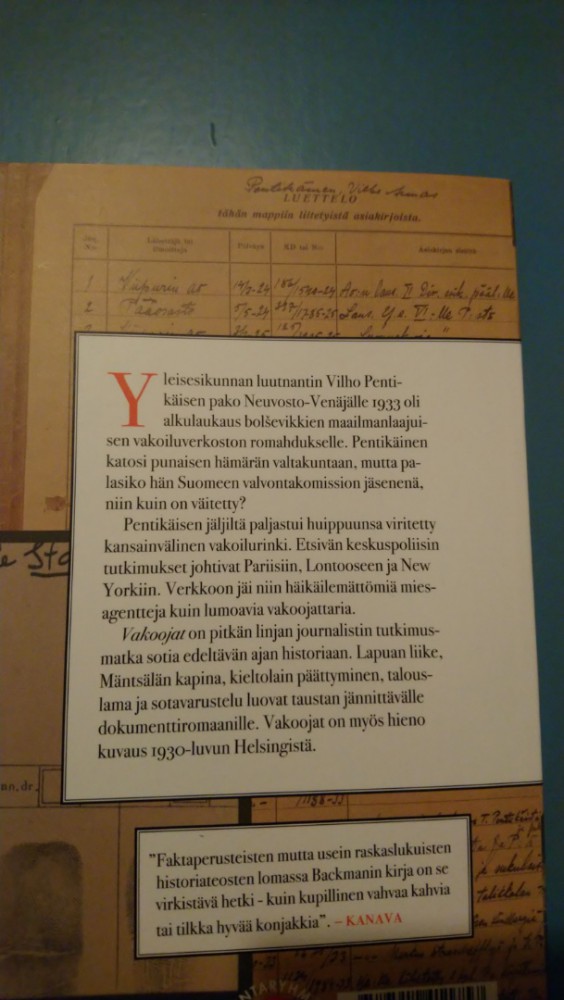 Pentikäinen, Vilho
LUETTELO
tähän mappiin liitetyistä asiakirjoista.
Päiväys
KD tai No:
Asiakirjan sisältö
1 Viipurin
2 Pääosasto
Yleisesikunnan luutnantin Vilho Penti-
käisen pako Neuvosto-Venäjälle 1933 oli
alkulaukaus bolševikkien maailmanlaajui-
sen vakoiluverkoston romahdukselle. Pentikäinen
katosi punaisen hämärän valtakuntaan, mutta pa-
lasiko hän Suomeen valvontakomission jäsenenä,
niin kuin on väitetty?
Pentikäisen jäljiltä paljastui huippuunsa viritetty
kansainvälinen vakoilurinki. Etsivän keskuspoliisin
tutkimukset johtivat Pariisiin, Lontooseen ja New
Yorkiin. Verkkoon jäi niin häikäilemättömiä mies-
agentteja kuin lumoavia vakoojattaria.
Vakoojat on pitkän linjan journalistin tutkimus-
matka sotia edeltävän ajan historiaan. Lapuan liike,
Mäntsälän kapina, kieltolain päättyminen, talous-
lama ja sotavarustelu luovat taustan jännittävälle
dokumenttiromaanille. Vakoojat on myös hieno
kuvaus 1930-luvun Helsingistä.
"Faktaperusteisten mutta usein raskaslukuisten
historiateosten lomassa Backmanin kirja on se
virkistävä hetki - kuin kupillinen vahvaa kahvia
tai tilkka hyvää konjakkia". – KANAVA